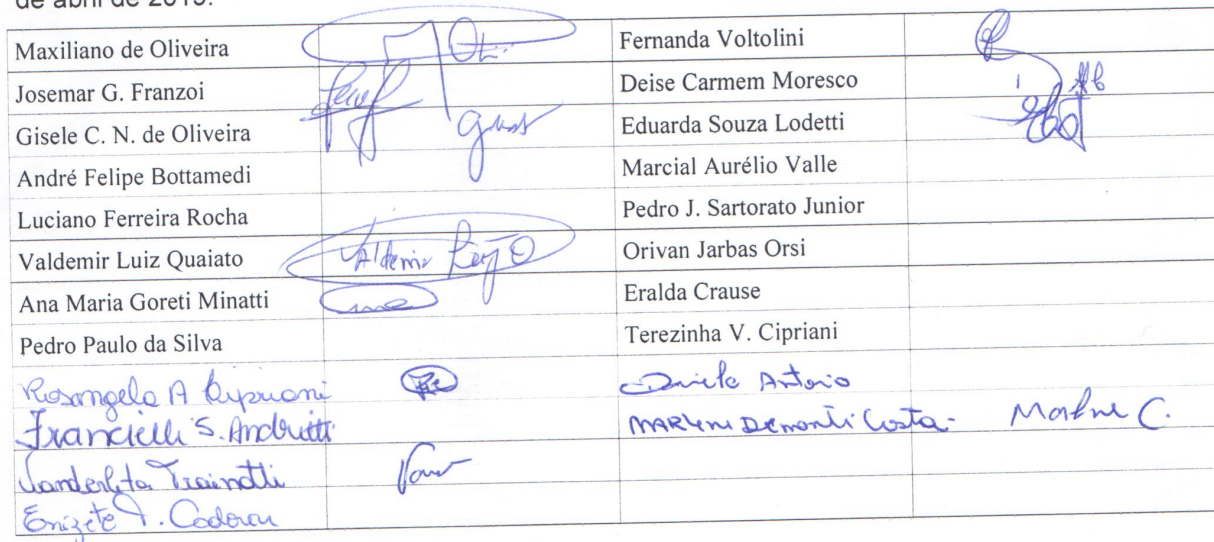 de abril de 2019.
Maxiliano de Oliveira Fernanda Voltolini
Josemar G. Franzoi Deise Carmem Moresco
Gisele C. N. de Oliveira Eduarda Souza Lodetti
André Felipe Bottamedi Marcial Aurélio Valle
Luciano Ferreira Rocha Pedro J. Sartorato Junior
Valdemir Luiz Quaiato Valdemir Orivan Jarbas Orsi
Ana Maria Goreti Minatti Eralda Crause
Pedro Paulo da Silva Terezinha V. Cipriani
Rosangela A Cipriani Daniele Antonio
Francielli S. Andrietti Costa
Vanderleta Trainotti
Enizete